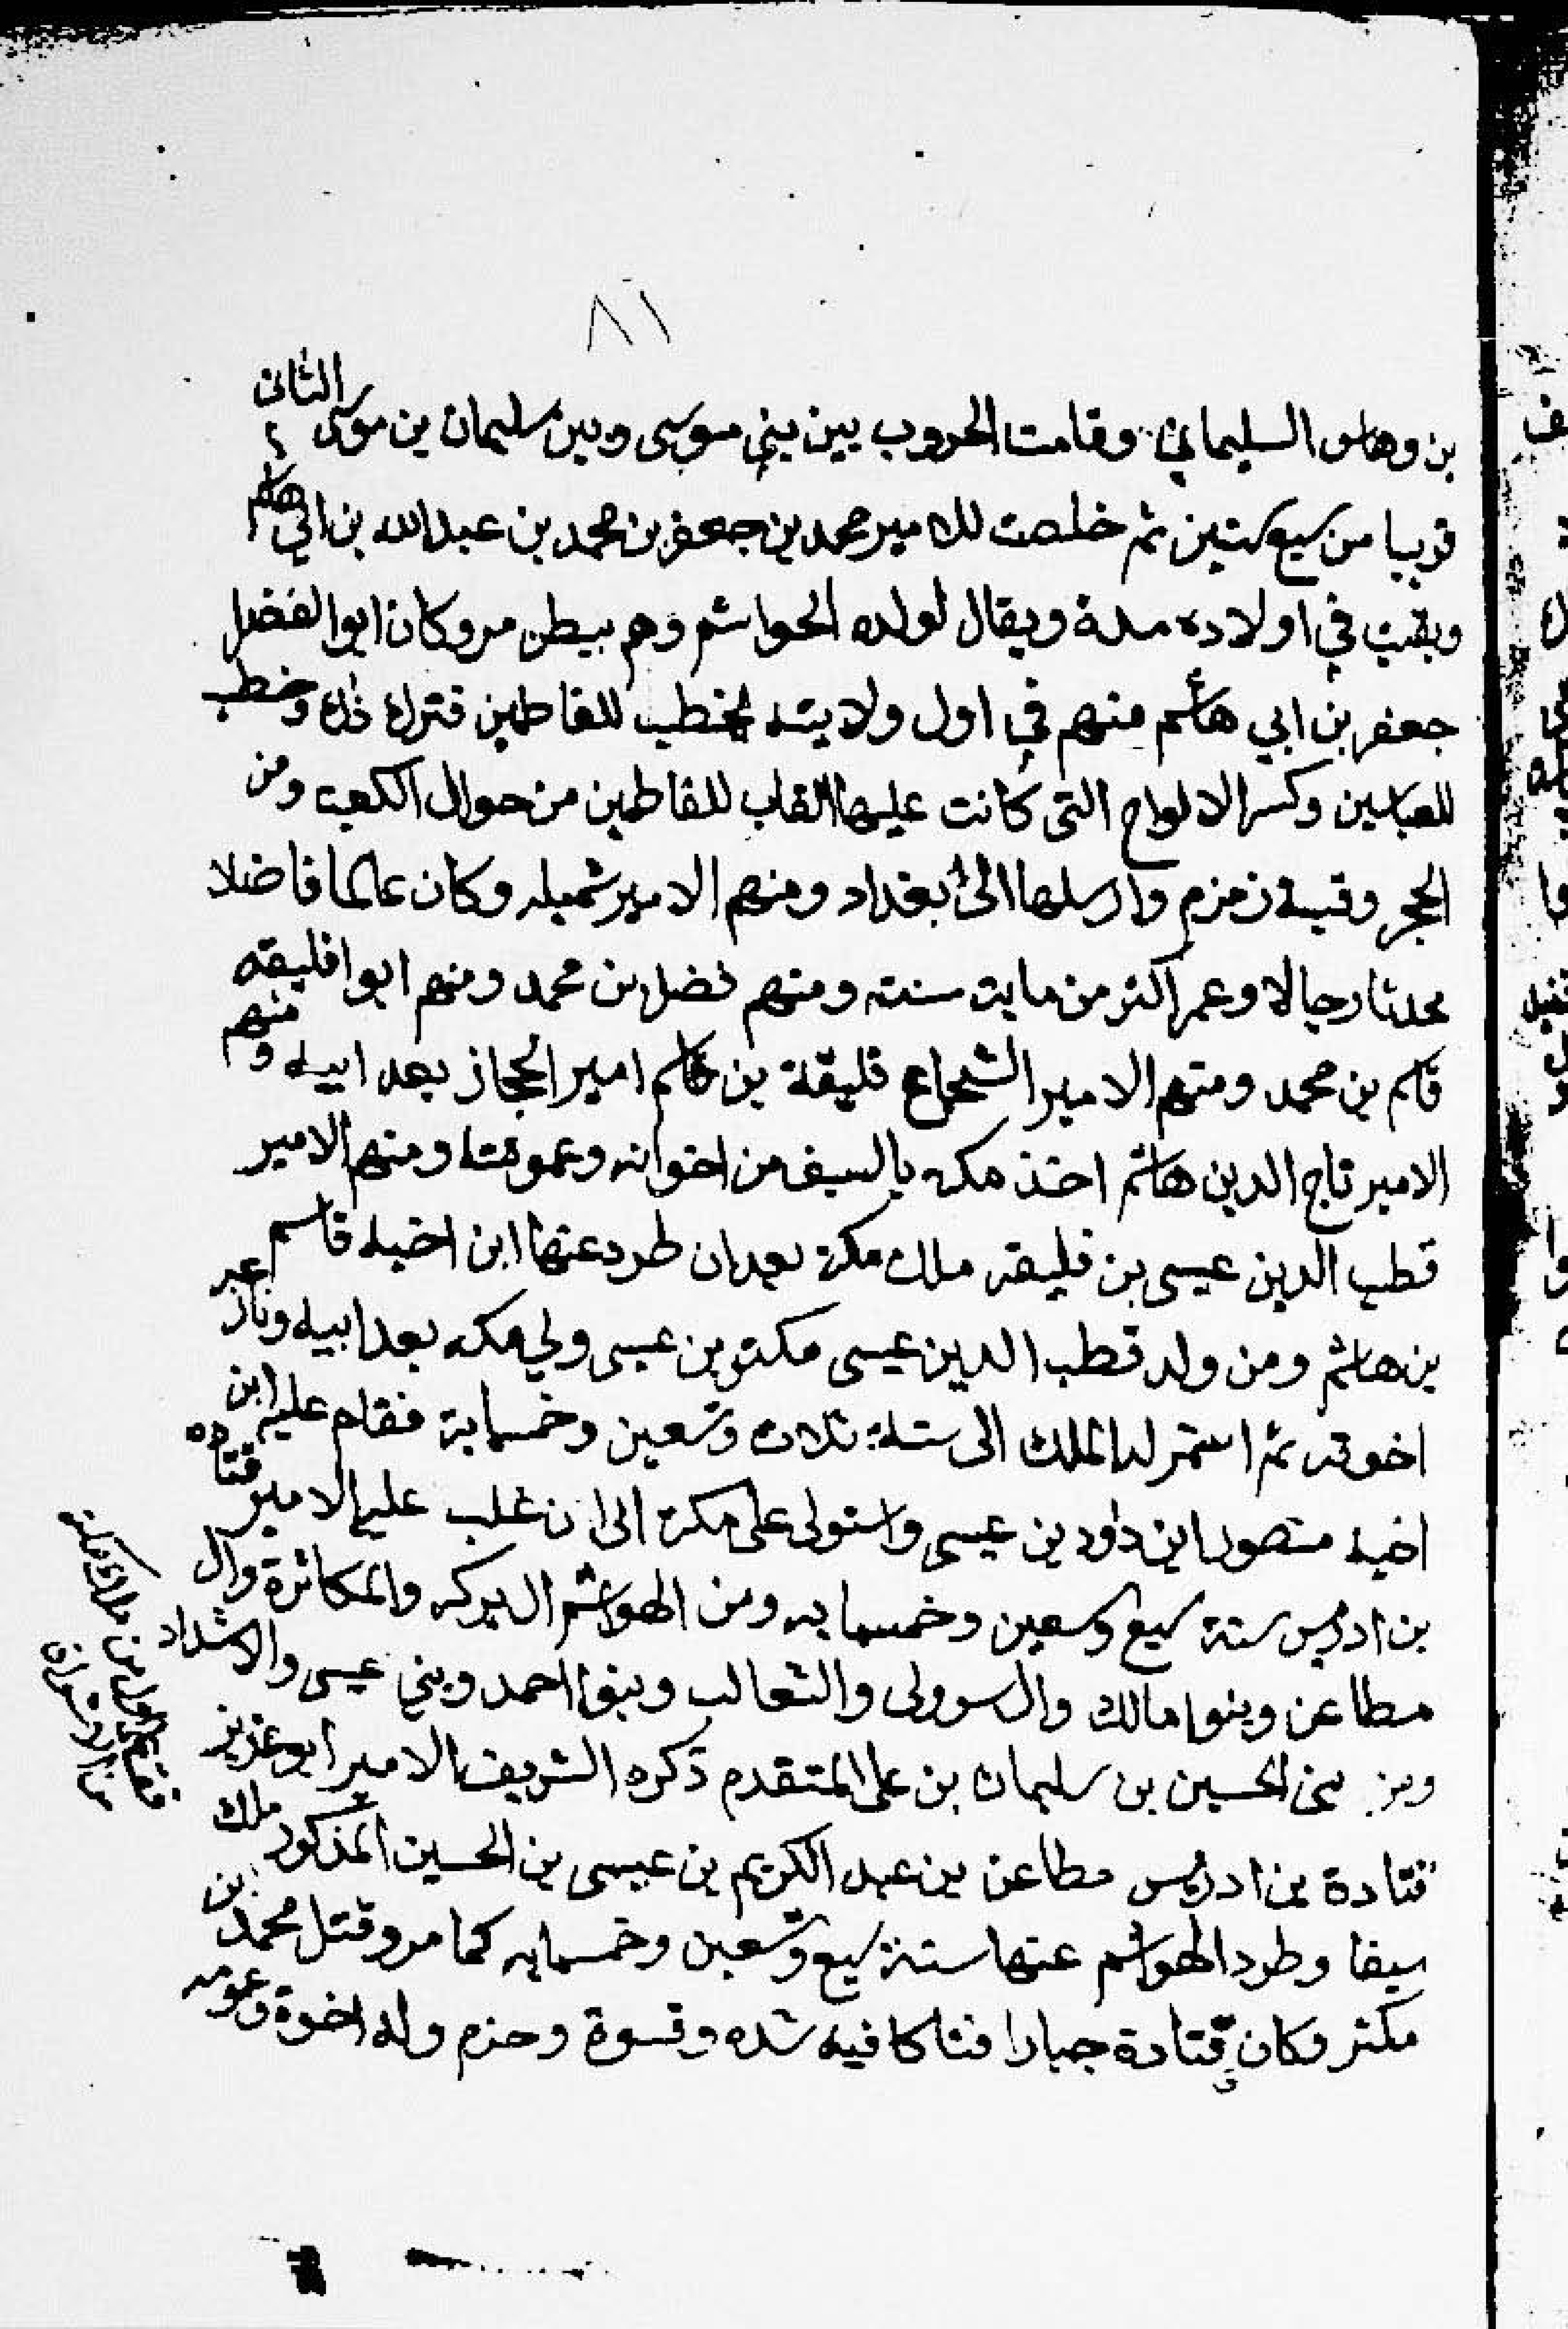 ٨١
بن وهاس السليماني وقامت الحروب بين بني موسى وبين سليمان بن موسى الثاني
قريبا من سبع سنين ثم خلصت للامير محمد بن جعفر بن محمد بن عبدالله بن ابي هاشم
وبقيت في اولاده مدة ويقال لولده الحواشم وهم ببطن مر وكان ابوا الفضل
جعفر بن ابي هاشم منهم في اول ولايته يخطب للفاطمين فترك ذلك وخطب
للعباسين وكسر الالواح التي كانت عليها القاب للفاطمين من حوال الكعبه ومن
الحجر وقبة زمزم وارسلها الى بغداد ومنهم الامير شميله وكان عالما فاضلا
محدثا رحالا وعمر اكثر من مايت سنته ومنهم فضل بن محمد ومنهم ابوا فليقه
قاسم بن محمد ومنهم الامير الشجاع فليقة بن قاسم امير الحجاز بعد ابيه ومنهم
الامير تاج الدين هاشم اخذ مكه بالسيف من اخوانه وعمومته ومنهم الامير
قطب الدين عيسى بن فليقه ملك مكة بعدان طرد عنها ابن اخيه قاسم
بن هاشم ومن ولد قطب الدين عيسى مكثر بن عيسى ولي مكه بعد ابيه ونازعه
اخوته ثم استمر له الملك الى سنة ثلاث وتسعين وخمسماية فقام عليه ابن
اخيه منصور ابن داود بن عيسى واستولى على مكه الى ان غلب عليه الامير قتاده
بن ادريس سنة سبع وتسعين وخمسمايه ومن الهواشم البركه والمكاثرة وال
مطاعن وبنوا مالك وال سرولى والثعالب وبنوا احمد وبني عيسى والاشداد
ومن بنى الحسين بن سليمان بن على المتقدم ذكره الشريف الامير ابو عزيز
قتادة بن ادريس مطاعن بن عبد الكريم بن عيسى بن الحسين المذكور ملك
سيفا وطرد الهواشم عنها سنة سبع وتسعين وخمسمايه كما مر وقتل محمد بن
مكثر وكان قتادة جبارا فتاكا فيه شده وقسوة وحزم وله اخوة وعمومه